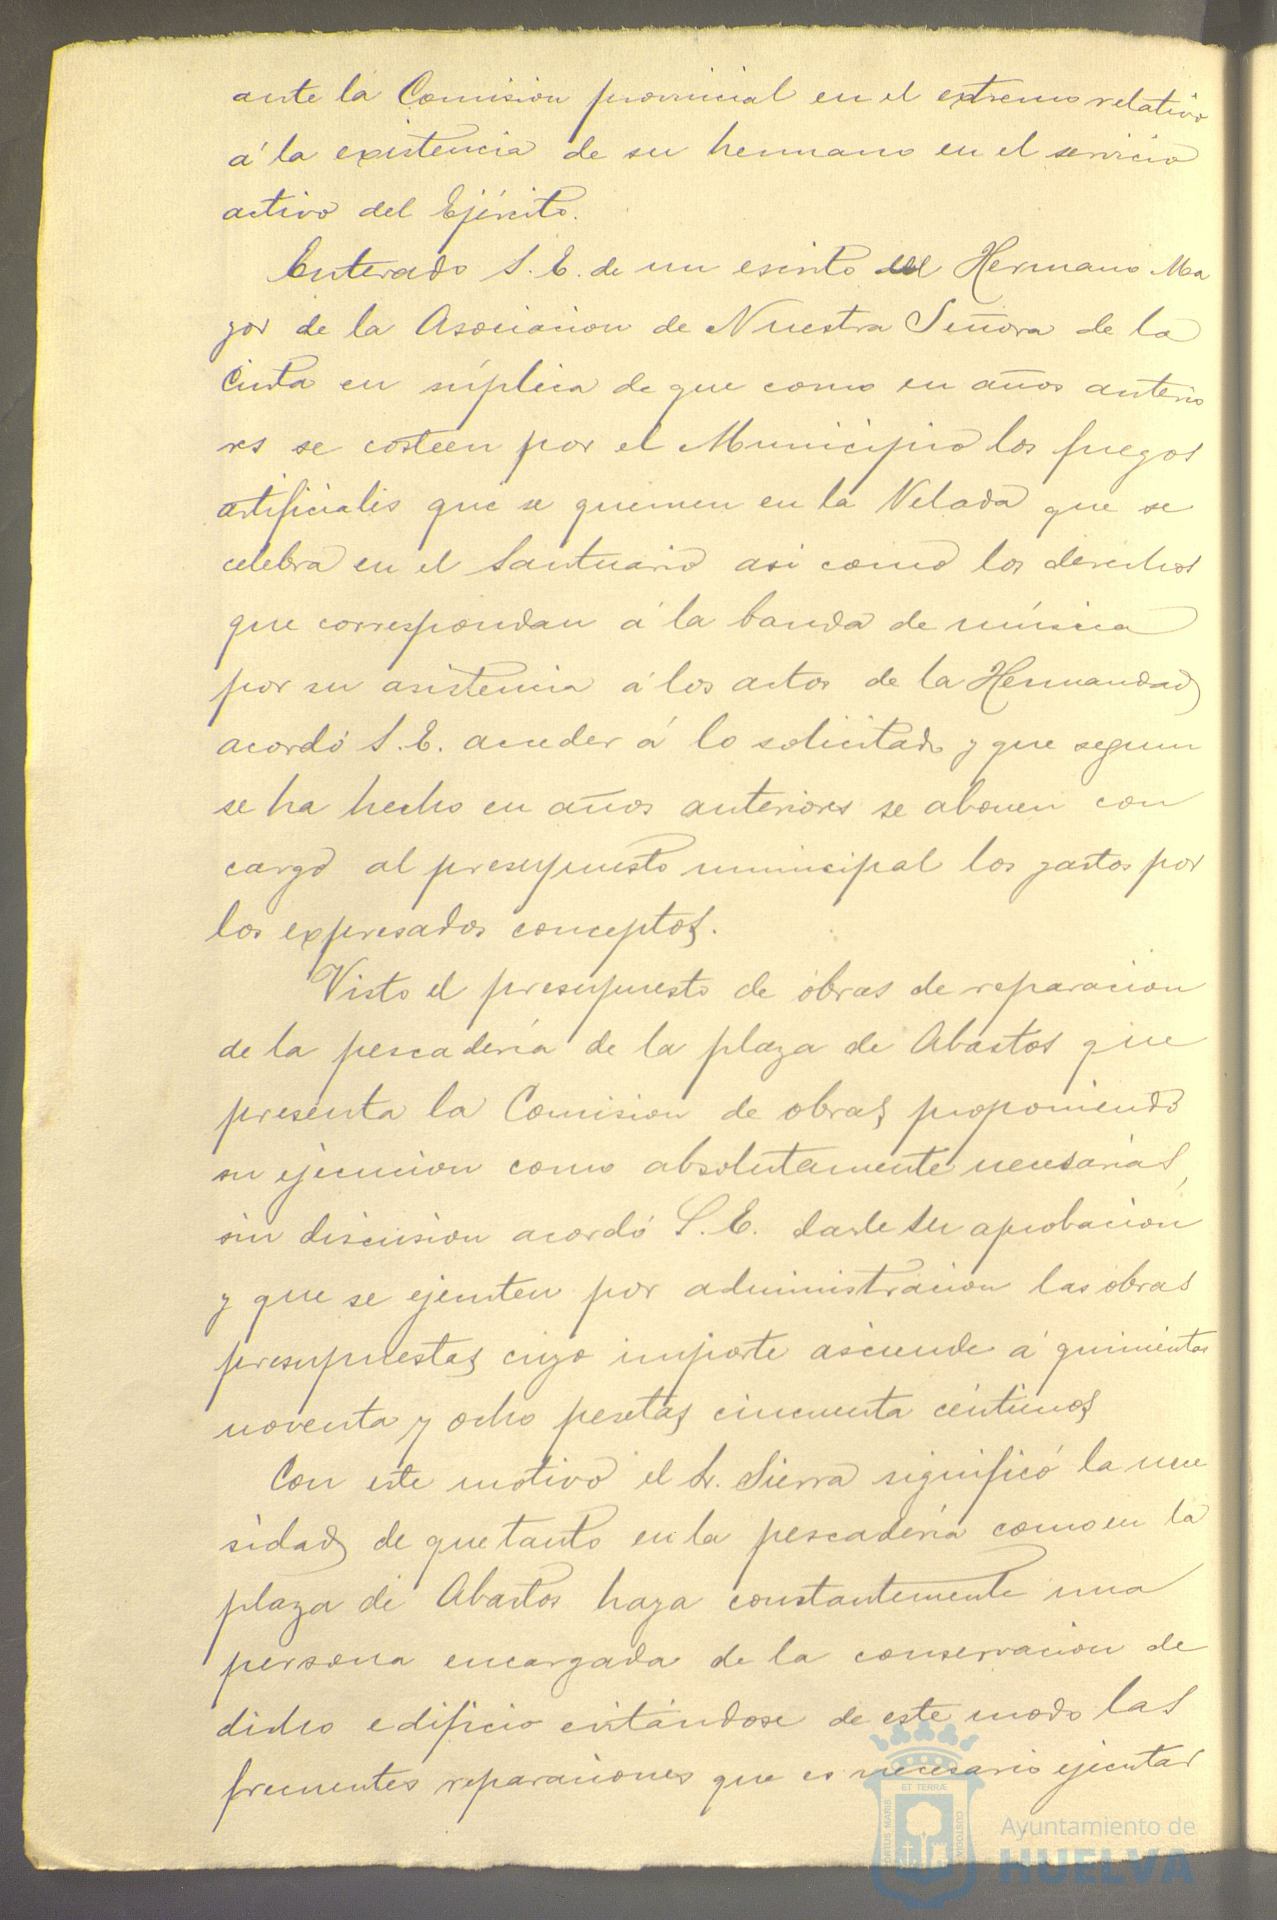 ante la Comision provincial en el extremo relativo
á la existencia de su hermano en el servicio
activo del Ejército.
Enterado S. E. de un escrito del Hermano Ma
yor de la Asociacion de Nuestra Señora de la
Cinta en súplica de que como en años anterio
res se costeen por el Municipio los fuegos
artificiales que se quemen en la Velada que se
celebra en el Santuario asi como los derechos
que correspondan á la banda de música
por su asistencia á los actos de la Hermandad
acordó S. E. acceder á lo solicitado y que segun
se ha hecho en años anteriores se abonen con
cargo al presupuesto municipal los gastos por
los expresados conceptos.
Visto el presupuesto de obras de reparacion
de la pescadería de la plaza de Abastos que
presenta la Comision de obras proponiendo
su ejecucion como absolutamente necesarias,
sin discusion acordó S. E. darle su aprobacion
y que se ejecuten por administracion las obras
presupuestas cuyo importe asciende á quinientas
noventa y ocho pesetas cincuenta céntimos
Con este motivo el Sr. Sierra significó la nece
sidad de que tanto en la pescadería como en la
plaza de Abastos haya constantemente una
persona encargada de la conservacion de
dicho edificio evitándose de este modo las
frecuentes reparaciones que es necesario ejecutar
PORTUS MARIS ET TERRÆ CUSTODIA
Ayuntamiento de
HUELVA